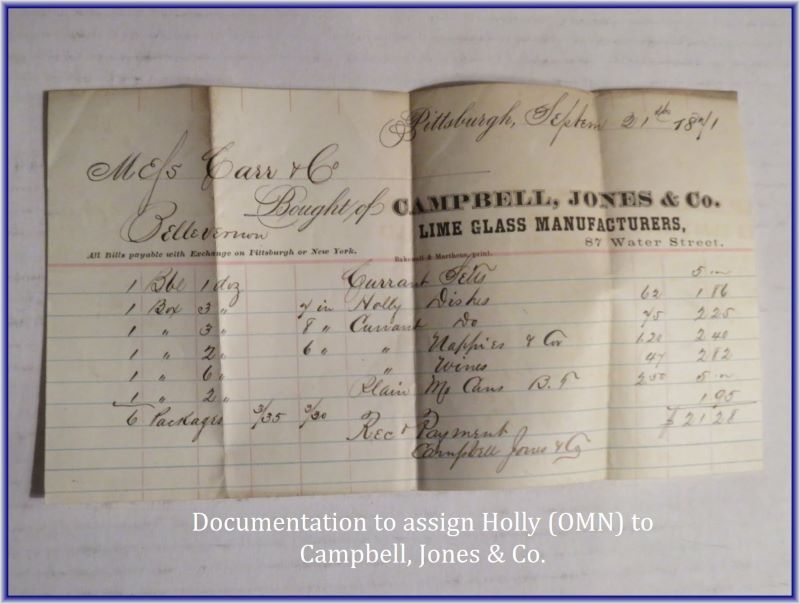 Pittsburgh, Septem 21 1871
Mess Carr & Co
Bellevernon
Bought of CAMPBELL, JONES & Co.
LIME GLASS MANUFACTURERS,
87 Water Street.
All Bills payable with Exchange on Pittsburgh or New York.
Bakewell & Marthens, print.
1 Bbl 1 doz Currant Setts 5
1 Box 3 " 7 in Holly Dishes 62 1 86
1 " 3 " 8 " Currant Do 75 2 25
1 " 2 " 6 " " Nappies & Cov 1 20 2 40
1 " 6 " " Wines 47 2 82
1 " 2 " Plain Cans 2 50 5
6 Packages 3/35 3/30 1 95
$21 28
Recd Payment
Campbell Jones & Co
Documentation to assign Holly (OMN) to
Campbell, Jones & Co.